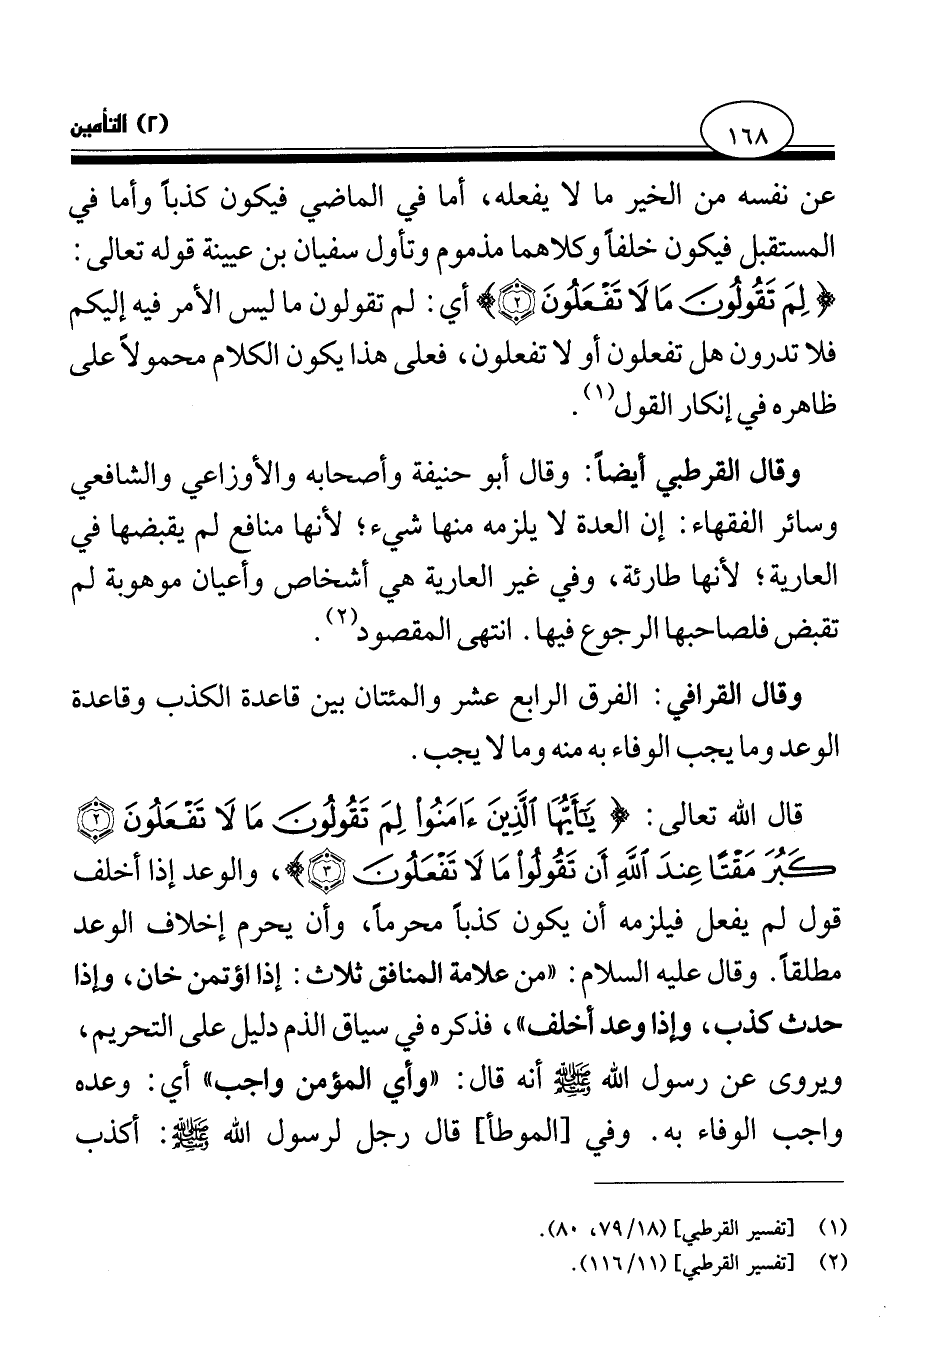 (٢) التأمين
١٦٨
عن نفسه من الخير ما لا يفعله، أما في الماضي فيكون كذباً وأما في
المستقبل فيكون خلفاً وكلاهما مذموم وتأول سفيان بن عيينة قوله تعالى:
﴿ لِمَ تَقُولُونَ مَا لَا تَفْعَلُونَ ٢﴾ أي: لم تقولون ما ليس الأمر فيه إليكم
فلا تدرون هل تفعلون أو لا تفعلون، فعلى هذا يكون الكلام محمولاً على
ظاهره في إنكار القول(١).
وقال القرطبي أيضاً: وقال أبو حنيفة وأصحابه والأوزاعي والشافعي
وسائر الفقهاء: إن العدة لا يلزمه منها شيء؛ لأنها منافع لم يقبضها في
العارية؛ لأنها طارئة، وفي غير العارية هي أشخاص وأعيان موهوبة لم
تقبض فلصاحبها الرجوع فيها. انتهى المقصود(٢).
وقال القرافي: الفرق الرابع عشر والمئتان بين قاعدة الكذب وقاعدة
الوعد وما يجب الوفاء به منه وما لا يجب.
قال الله تعالى: ﴿ يَٰٓأَيُّهَا ٱلَّذِينَ ءَامَنُوا۟ لِمَ تَقُولُونَ مَا لَا تَفْعَلُونَ ٢
كَبُرَ مَقْتًا عِندَ ٱللَّهِ أَن تَقُولُوا۟ مَا لَا تَفْعَلُونَ ٣﴾، والوعد إذا أخلف
قول لم يفعل فيلزمه أن يكون كذباً محرماً، وأن يحرم إخلاف الوعد
مطلقاً. وقال عليه السلام: «من علامة المنافق ثلاث: إذا اؤتمن خان، وإذا
حدث كذب، وإذا وعد أخلف»، فذكره في سياق الذم دليل على التحريم،
ويروى عن رسول الله ﷺ أنه قال: «وأي المؤمن واجب» أي: وعده
واجب الوفاء به. وفي [الموطأ] قال رجل لرسول الله ﷺ: أكذب
(١) [تفسير القرطبي] (١٨/ ٧٩، ٨٠).
(٢) [تفسير القرطبي] (١١/ ١١٦).